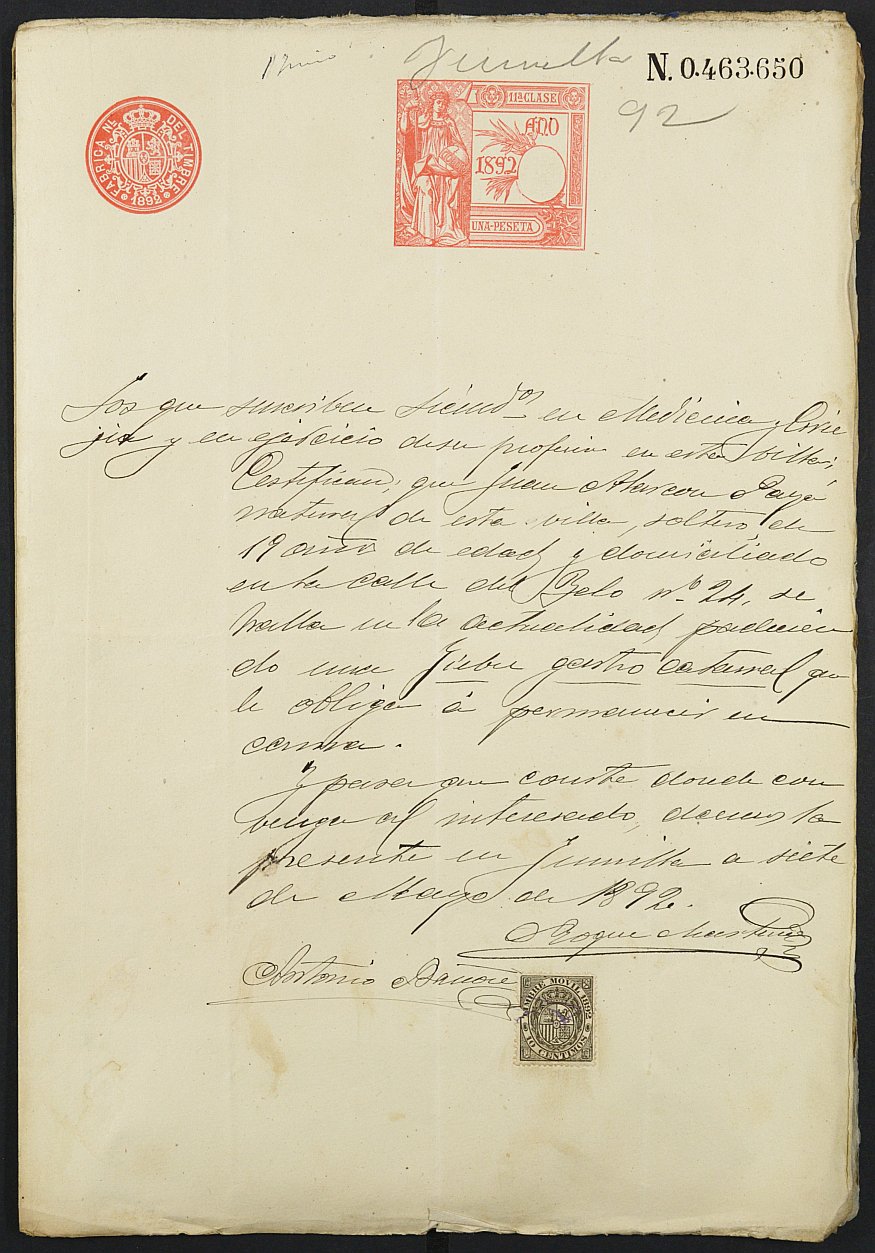 1 Junio
Jumilla
N. 0.463.650
92
FABRICA NL. DEL TIMBRE
1892
11ª CLASE
AÑO
1892
UNA-PESETA
Los que suscriben Licendos en Medicina y Ciru
jia y en ejercicio de su profesion en esta villa;
Certifican; que Juan Alarcon Payá
natural de esta villa, soltero de
19 años de edad y domiciliado
en la calle del nº 24, se
halla en la actualidad padecien
do una fiebre gastro catarral que
le obliga á permanecer en
cama.
Y para que conste donde con
venga al interesado, damos la
presente en Jumilla a siete
de Mayo de 1892.
Roque Martinez
Antonio
TIMBRE MOVIL 1892
10 CENTIMOS